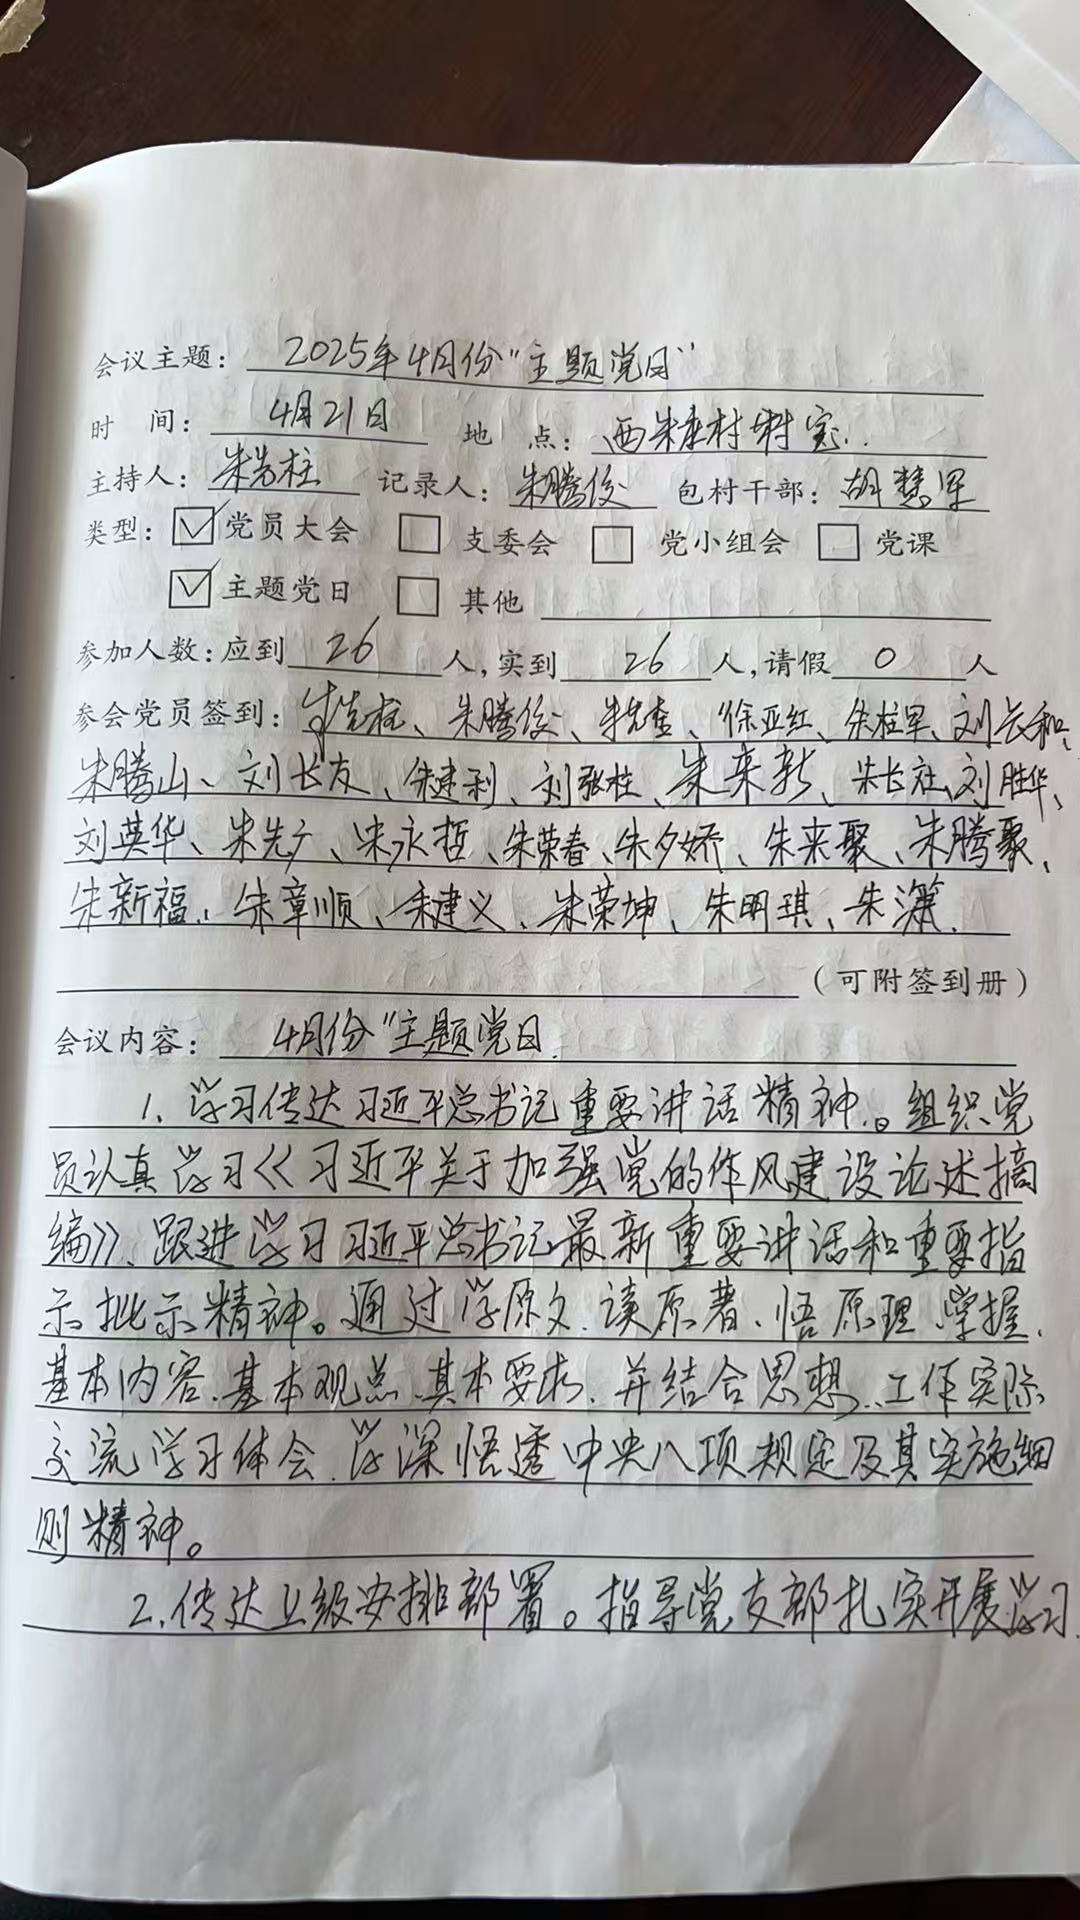 会议主题：2025年4月份“主题党日”
时 间：4月21日 地 点：西朱村村室
主持人：朱先柱 记录人：朱腾俊 包村干部：胡慧军
类型：☑党员大会 □支委会 □党小组会 □党课
☑主题党日 □其他
参加人数：应到26人，实到26人，请假0人
参会党员签到：朱先柱、朱腾俊、徐亚红、朱柱军、刘长和、
朱腾山、刘长友、朱建利、刘张柱、朱来新、朱长社、刘胜华、
刘英华、朱先广、朱永哲、朱荣春、朱夕娇、朱来聚、朱腾聚、
朱新福、朱章顺、朱建义、朱荣坤、朱明琪、朱潇.
（可附签到册）
会议内容：4月份“主题党日.
1. 学习传达习近平总书记重要讲话精神。组织党
员认真学习《习近平关于加强党的作风建设论述摘
编》、跟进学习习近平总书记最新重要讲话和重要指
示批示精神。通过学原文、读原著、悟原理、掌握、
基本内容、基本观点、基本要求、并结合思想、工作实际
交流学习体会、学深悟透中央八项规定及其实施细
则精神。
2. 传达上级安排部署。指导党支部扎实开展学习.